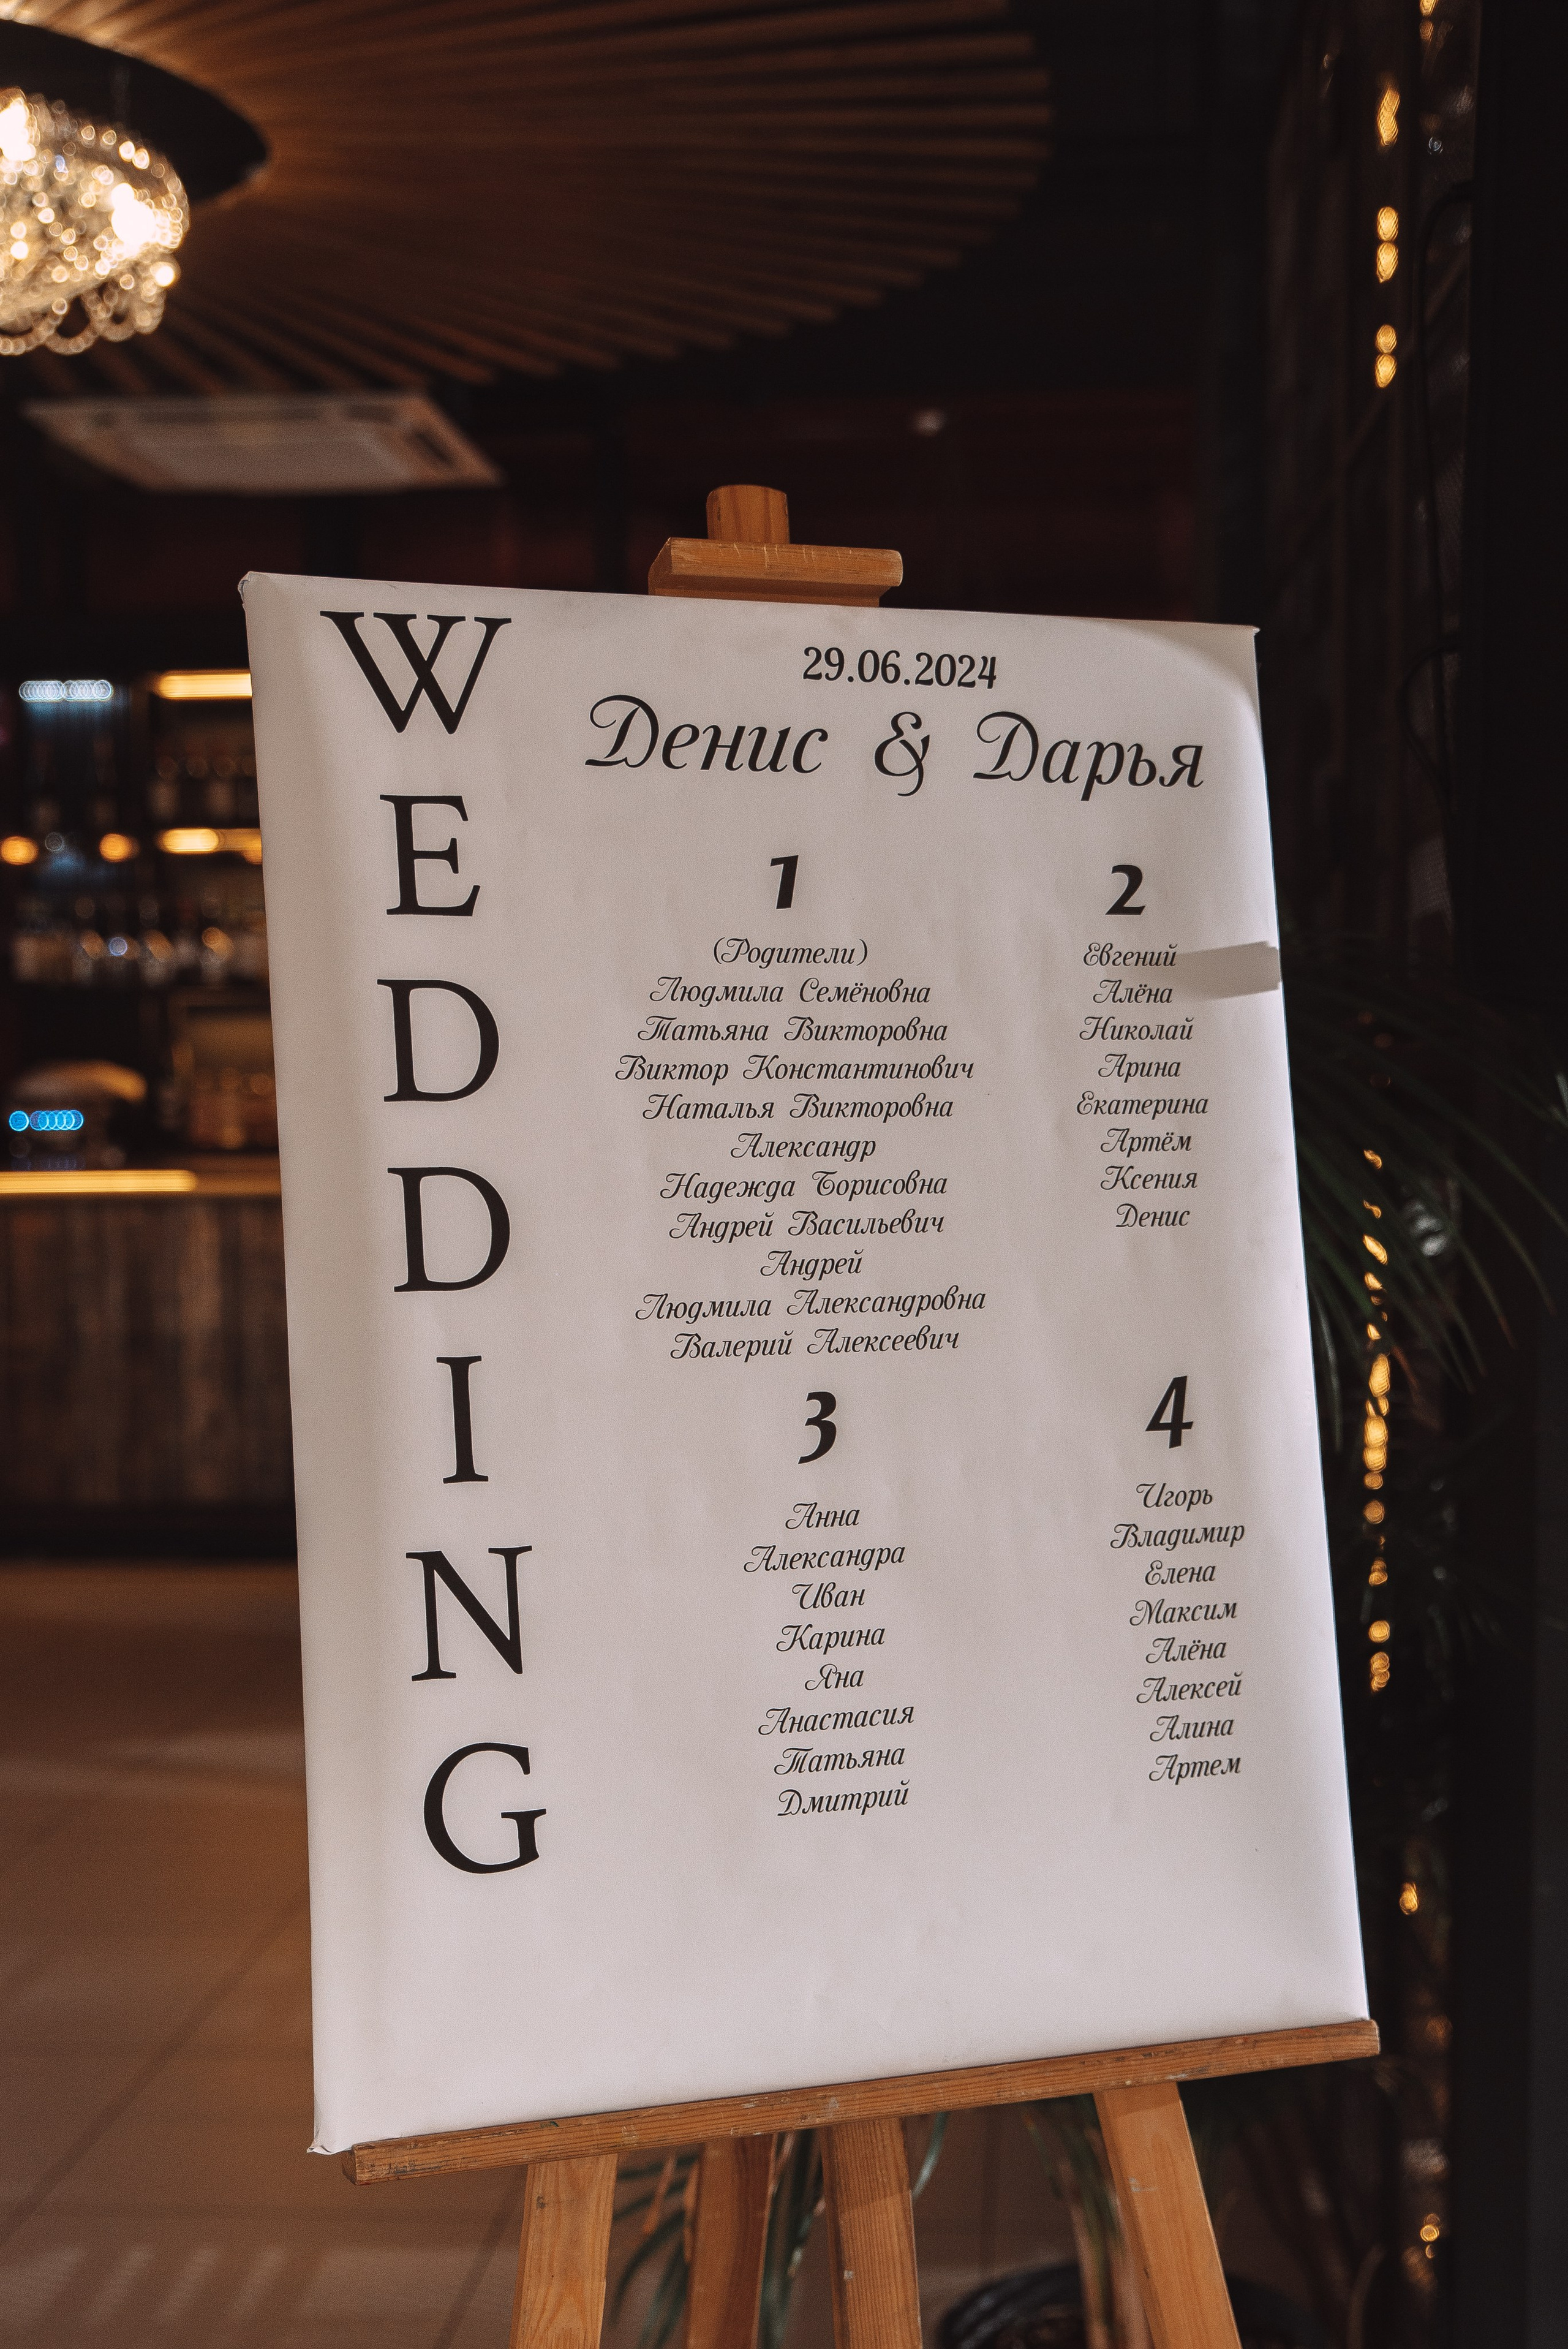 WEDDING
29.06.2024
Денис & Дарья
1
(Родители)
Людмила Семёновна
Татьяна Викторовна
Виктор Константинович
Наталья Викторовна
Александр
Надежда Борисовна
Андрей Васильевич
Андрей
Людмила Александровна
Валерий Алексеевич
2
Евгений
Алёна
Николай
Арина
Екатерина
Артём
Ксения
Денис
3
Анна
Александра
Иван
Карина
Яна
Анастасия
Татьяна
Дмитрий
4
Игорь
Владимир
Елена
Максим
Алёна
Алексей
Алина
Артем